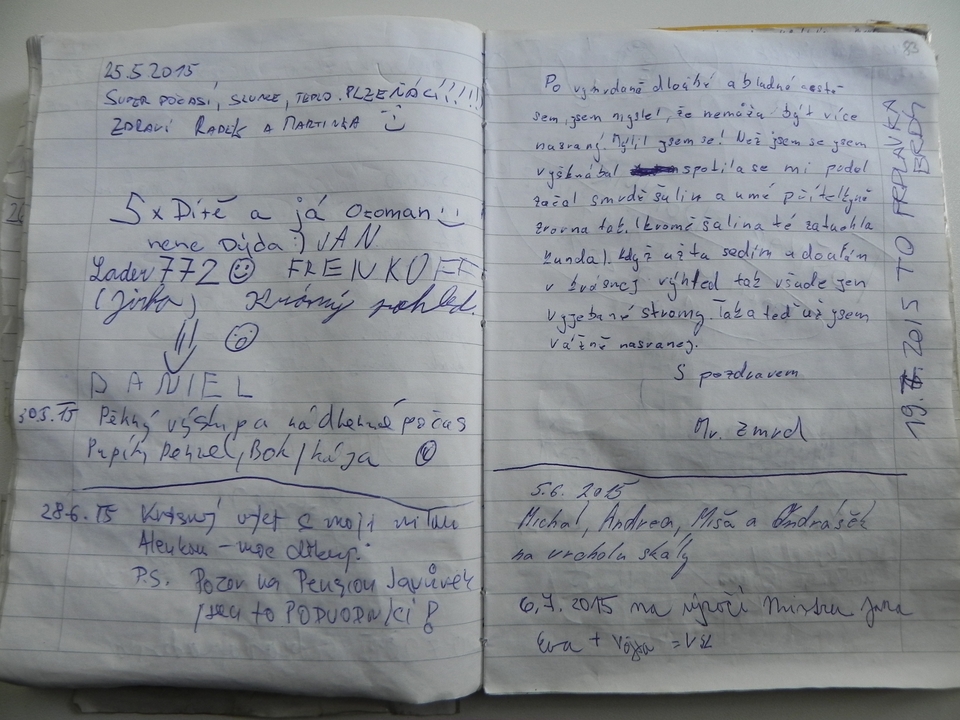 25.5 2015
SUPER POČASÍ, SLUNCE, TEPLO. PLZEŇÁCI!!!!!
ZDRAVÍ RADEK A MARTINKA
5x Dítě a já Otoman
nene Dýda :) JAN
Lader 772 FRENKOFF
(Jirka) Krásný pohled.
DANIEL
30.5.15 Pěkný výstup a nádherné počas
Pupíky Denzel, Bok, Kája
28.6.15 Krásnej výlet s mojí milou
Alenkou – moc děkuji
P.S. Pozor na Penzion Javůrek
jsou to PODVODNÍCI!
93
Po vyhrdané dlouhé a bludné cestě
sem jsem myslel, že nemůžu být více
nasraný. Mýlil jsem se! Než jsem se sem
vyškrábal spotila se mi podel
začal smrdě šulin a umé přítelkyně
zrovna tak. (kromě šalina té zatuchla
kunda). Když už tu sedím a doufám
v krásnej výhled tak všude jen
vyjebané stromy. Tak a teď už jsem
vážně nasranej.
S pozdravem
Mr. Zmrd
19.7. 2015 TO PRDAVKA BRDY
5.6. 2015
Michal, Andrea, Míša a Ondrášek
na vrcholu skály
6.7. 2015 na výročí mistra Jana
Eva + Vojta = VŠE